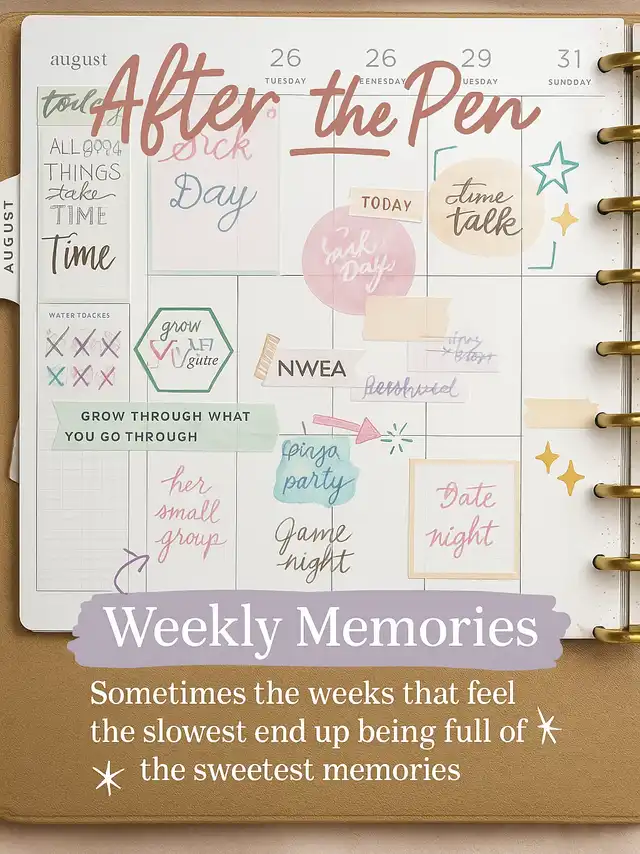 After the Pen
august
26
TUESDAY
26
EENESDAY
29
UESDAY
31
SUNDDAY
AUGUST
today
THINGS
take
TIME
Time
Day
TODAY
Day
time
talk
WATER TDACKES
grow
gütte
NWEA
GROW THROUGH WHAT
YOU GO THROUGH
party
her
small
group
Game
night
Date
night
Weekly Memories
Sometimes the weeks that feel
the slowest end up being full of
the sweetest memories